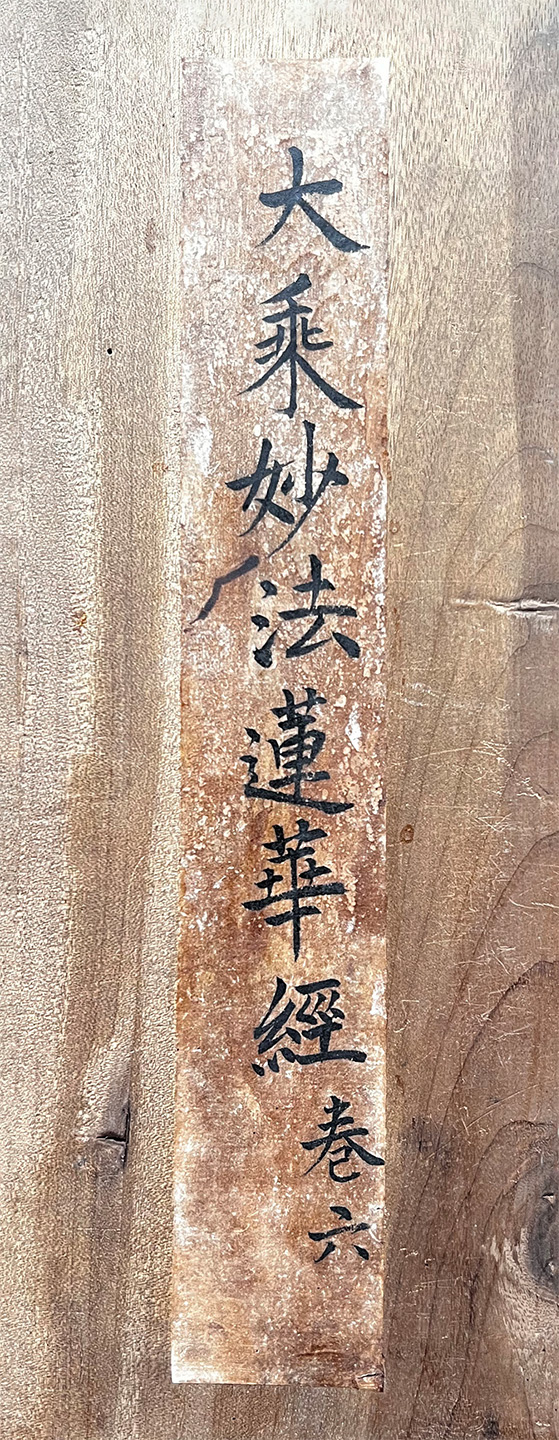 大乘妙法蓮華經卷六